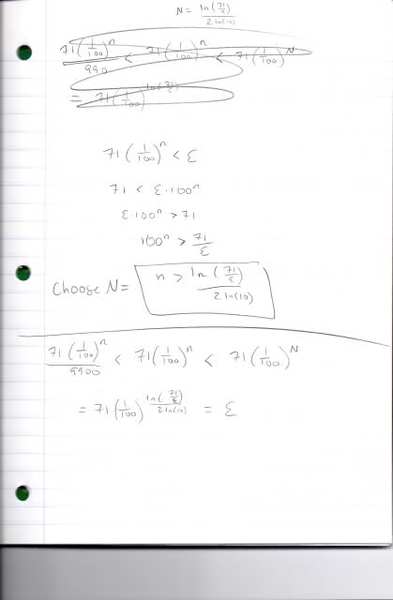 N = ln(71/ε)/2ln(10)
71(1/100)^n/9900 < 71(1/100)^n < 71(1/100)^N
= 71(1/100)^ln(71/ε)
71(1/100)^n < ε
71 < ε·100^n
ε·100^n > 71
100^n > 71/ε
Choose N = n > ln(71/ε)/2ln(10)
71(1/100)^n/9900 < 71(1/100)^n < 71(1/100)^N
= 71(1/100)^(ln(71/ε)/2ln(10)) = ε